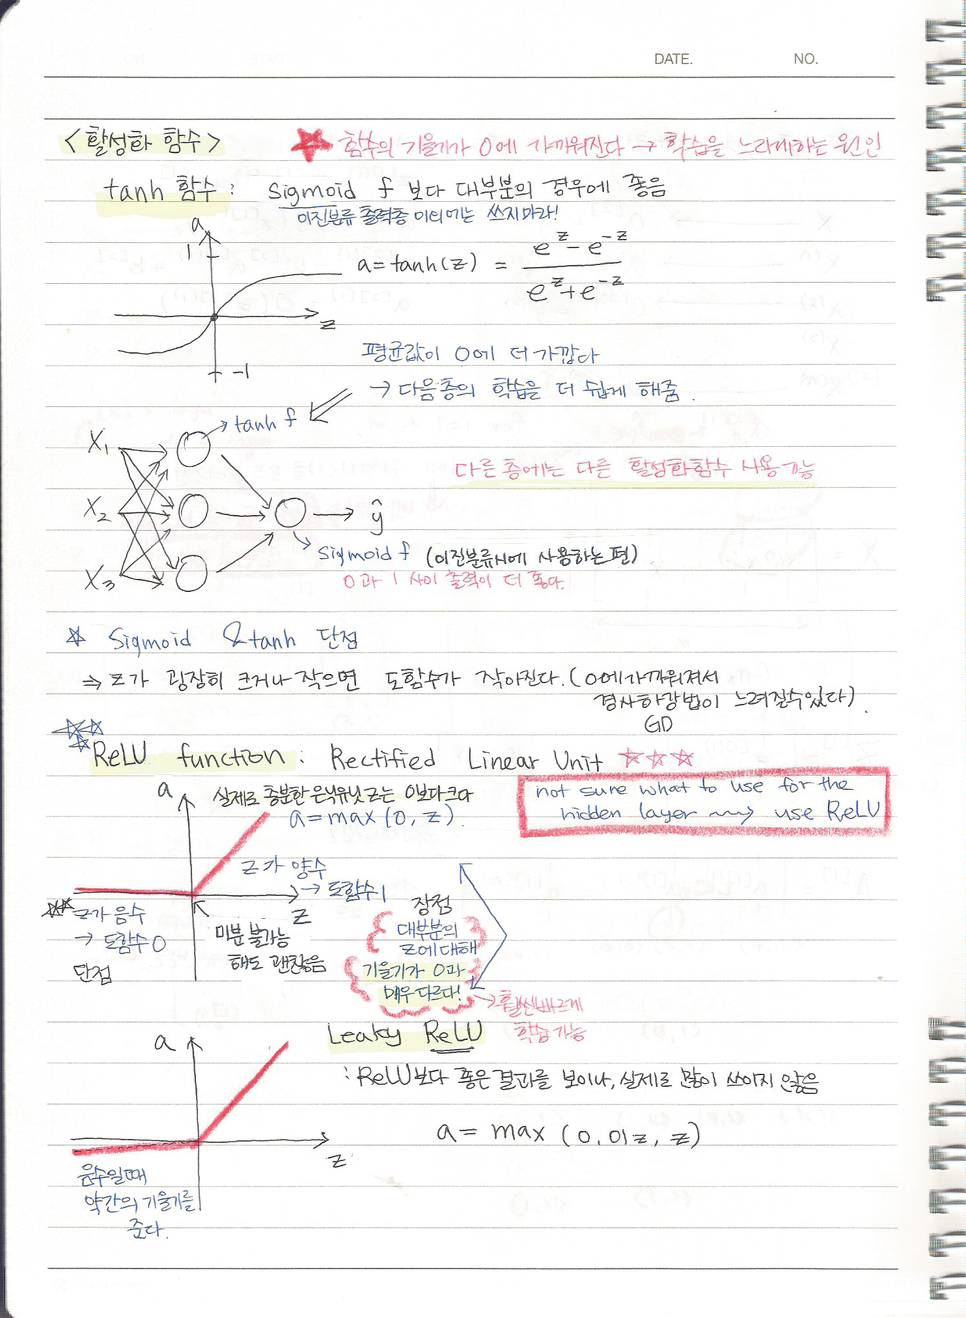 DATE.
NO.
<활성화 함수>
함수의 기울기가 0에 가까워진다 → 학습을 느리게하는 원인
tanh 함수 : sigmoid f 보다 대부분의 경우에 좋음
이진분류 출력층 이외에는 쓰지마라!
a
1
a = tanh(z) = e^z - e^-z / e^z + e^-z
z
-1
평균값이 0에 더 가깝다
→ 다음층의 학습을 더 쉽게 해줌.
→ tanh f
X1
X2
X3
ŷ
다른 층에는 다른 활성화함수 사용가능
sigmoid f (이진분류시에 사용하는 편)
0과 1 사이 출력이 더 좋다.
☆ Sigmoid & tanh 단점
⇒ z가 굉장히 크거나 작으면 도함수가 작아진다. (0에 가까워져서
경사하강법이 느려질수있다)
GD
ReLU function : Rectified Linear Unit ☆☆☆
a
실제로 충분한 은닉유닛 z는 0보다크다
a = max (0, z).
not sure what to use for the
hidden layer ⟿ use ReLU
z가 양수
→ 도함수 1
z
z가 음수
→ 도함수 0
단점
미분 불가능
해도 괜찮음
장점
대부분의
z에 대해
기울기가 0과
매우다르다!
→ 훨씬빠르게
학습 가능
Leaky ReLU
: ReLU보다 좋은 결과를 보이나, 실제로 많이 쓰이지 않음
a
a = max (0.01z, z)
z
음수일때
약간의 기울기를
준다.